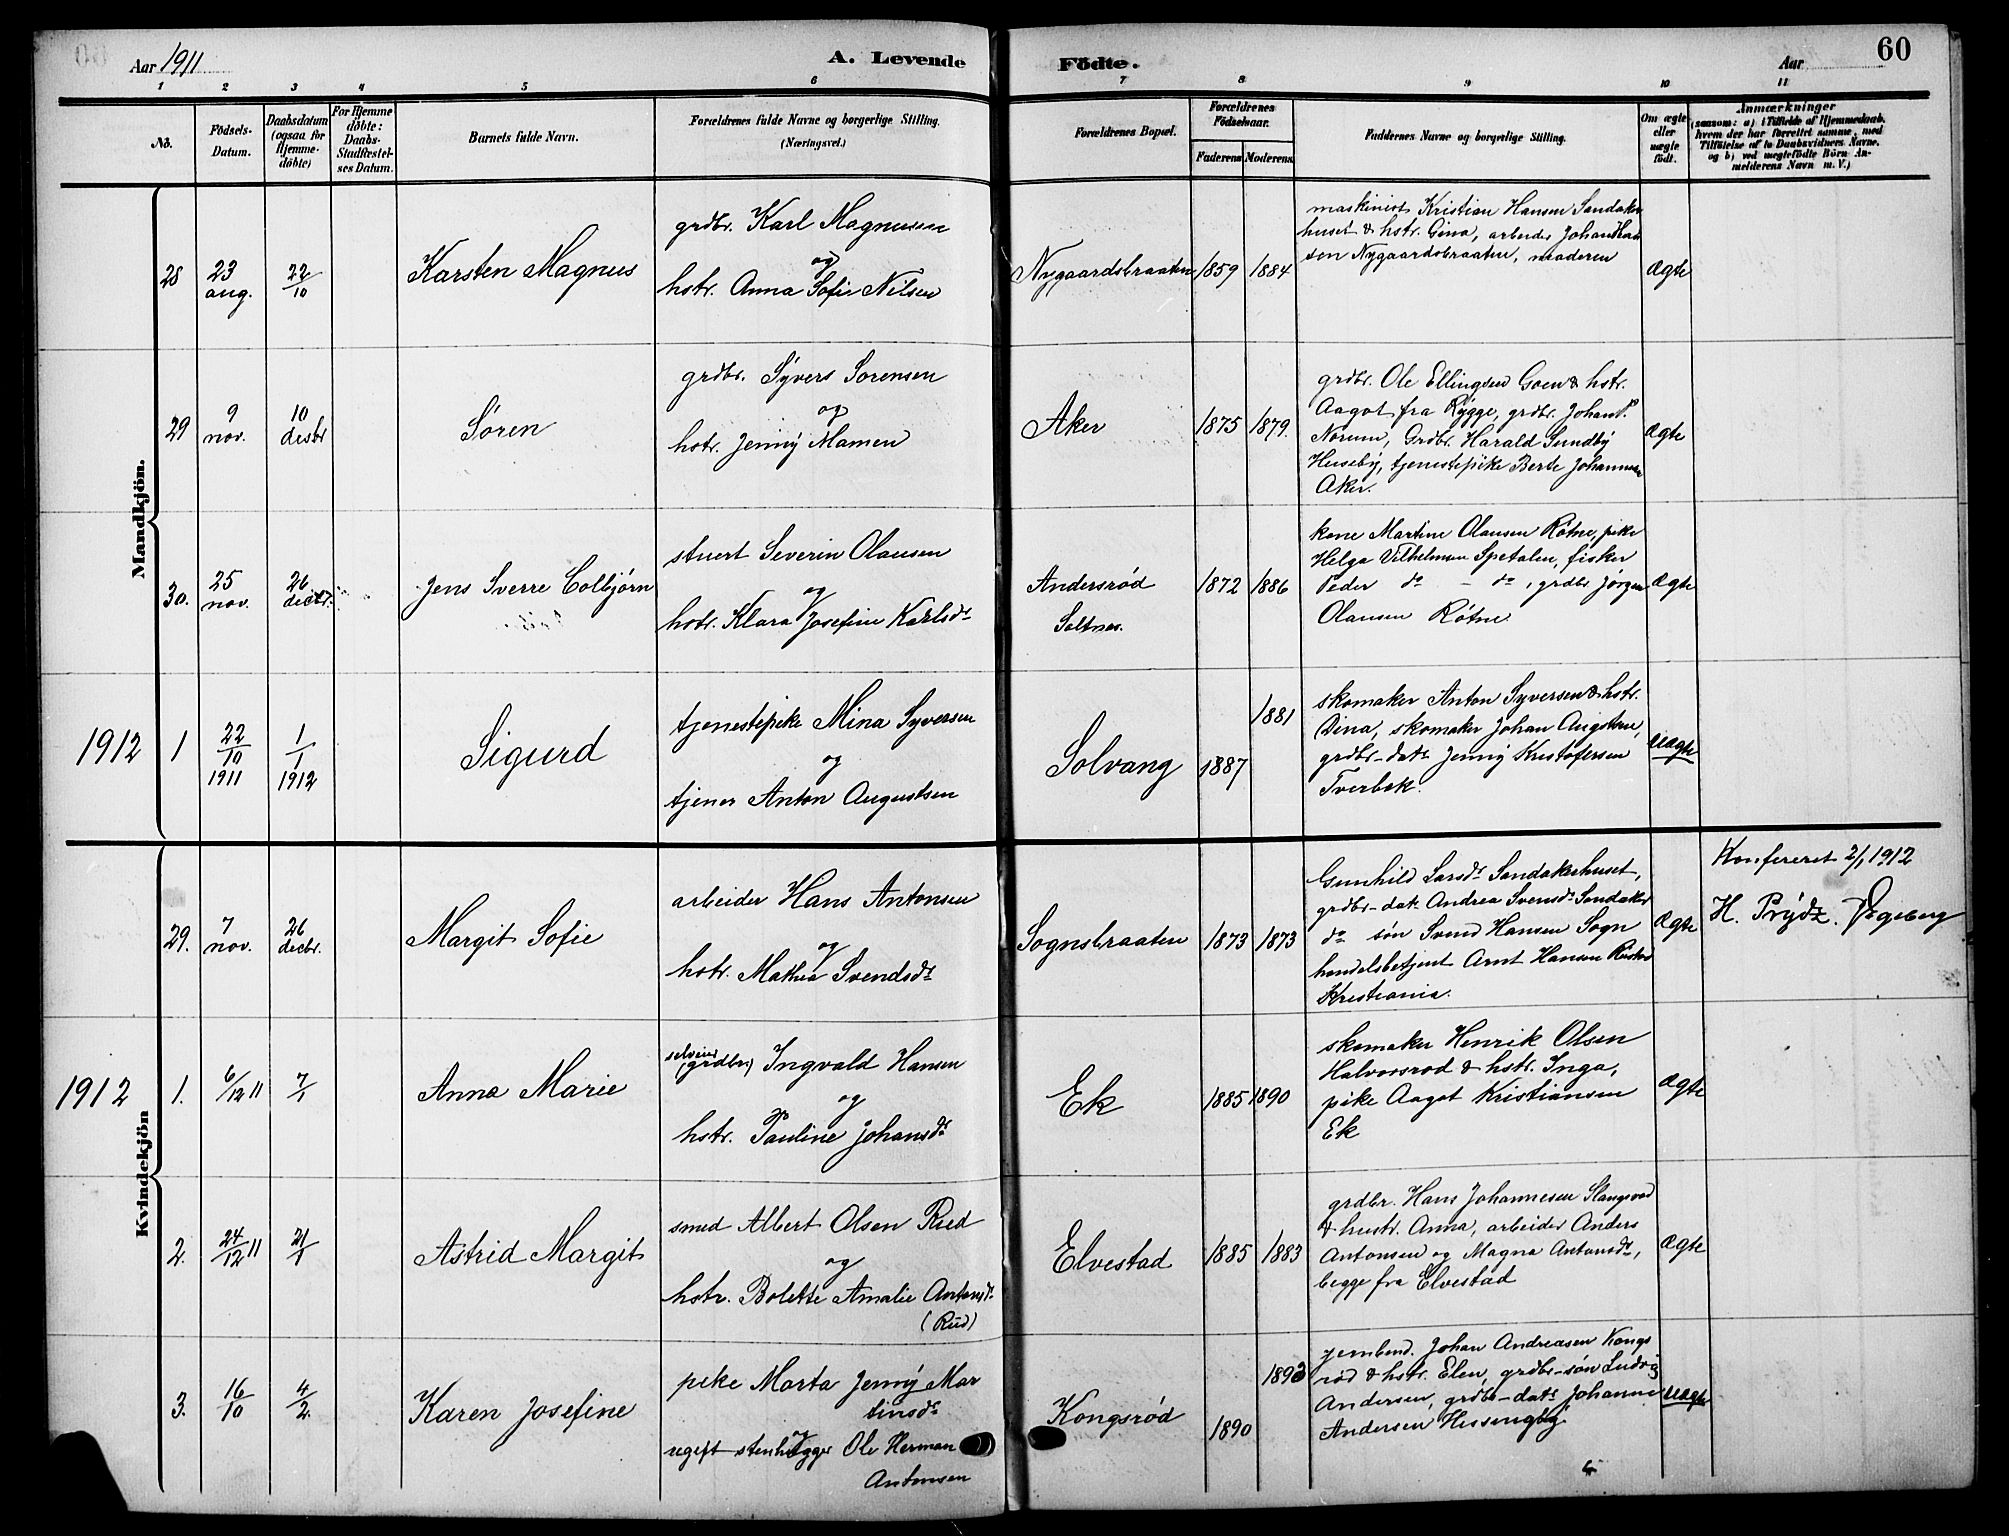 Aar 1911
A. Levende Födte.
Aar
60
1 2 3 4 5 6 7 8 9 10 11
No.
Födsels-
Datum.
Daabsdatum
(ogsaa for
Hjemme-
döbte)
For Hjemme
döbte:
Daabs-
Stadfæstel-
ses Datum.
Barnets fulde Navn.
Forældrenes fulde Navne og borgerlige Stilling.
(Næringsvei.)
Forældrenes Bopæl.
Forældrenes
Födselsaar.
Faderens Moderens
Faddernes Navne og borgerlige Stilling.
Om ægte
eller
uægte
födt.
Anmærkninger
(saasom: a) i Tilfælde af Hjemmedaab,
hvem der har forrettet samme, med
Tilföielse af to Daabsvidners Navne,
og b) ved uægtefödte Börn An-
melderens Navn m. V.)
Mandkjön.
28
23
aug.
22/10
Karsten Magnus
grdbr. Karl Magnusen
og
hstr. Anna Sofie Nilsen
Nygaardsbraaten
1859 1884
maskinist Kristian Hansen Sandaker
huset & hstr. Gina, arbeider Johan
sen Nygaardsbraaten, moderen
ægte
29
9
nov.
10
decbr
Søren
grdbr. Syvers Sorensen
og
hstr. Jenny Mamen
Aker
1875 1879.
grdbr. Ole Ellingsen Goen & hstr.
Aagot fra Rygge, grdbr. Johan P.
Norum, Grdbr. Harald Sundby
Huseby, tjenestepike Berte Johannesen
Aker.
ægte
30.
25
nov.
26
decbr.
Jens Sverre Colbjørn
stuert Severin Olausen
og
hstr. Klara Josefine Karlsdr
Andersrød
Saltnes.
1872 1886
kone Martine Olausen Røtne, pike
Helga Vilhelmsen Spetalen, fisker
Peder do – do, grdbr Jørgen
Olausen Røtne
ægte
1912
1
22/10
1911
1/1
1912
Sigurd
tjenestepike Mina Syversen
og
tjener Anton Augustsen
Solvang
1881
1887
skomaker Anton Syversen & hstr.
Dina, skomaker Johan Augustsen,
grdbr-datr Jenny Kristofersen
Tverbek.
uægte
Kvindekjön
29.
7
nov.
26
decbr.
Margit Sofie
arbeider Hans Antonsen
og
hstr. Mathea Svendsdr
Sognsbraaten
1873 1873
Gunhild Larsdr Sandakerhuset,
grdbr-datr Andrea Svensdr Sandaker
do søn Svend Hansen Sogn
handelsbetjent Arnt Hansen
Kristiania.
ægte
Konfereret 2/1 1912
H. Prydz.
1912
1.
6/12 11
7/1
Anna Marie
selveier
(grdbr) Ingvald Hansen
og
hstr. Pauline Johansdr
Ek
1885 1890
skomaker Henrik Olsen
Halvorsrod & hstr. Inga,
pike Aagot Kristiansen
Ek
ægte
2.
24/12 11
21/1
Astrid Margit
smed Albert Olsen Rud
og
hstr. Bolette Amalie Antonsdr
(Rud)
Elvestad
1885 1883
grdbr. Hans Johannesen Slangsvod
& hustr. Anna, arbeider Anders
Antonsen og Magna Antonsdr,
begge fra Elvestad
ægte
3.
16/10
4/2.
Karen Josefine
pike Marta Jenny Mar
tinsdr
og
ugift stenhugger Ole Herman
Antonsen
Kongsrød
1893
1890
jernbmd. Johan Andreasen Kongs
rød & hstr. Elen, grdbr-søn Ludvig
Andersen, grdbr-datr Johanne
Andersen Hessengby
uægte